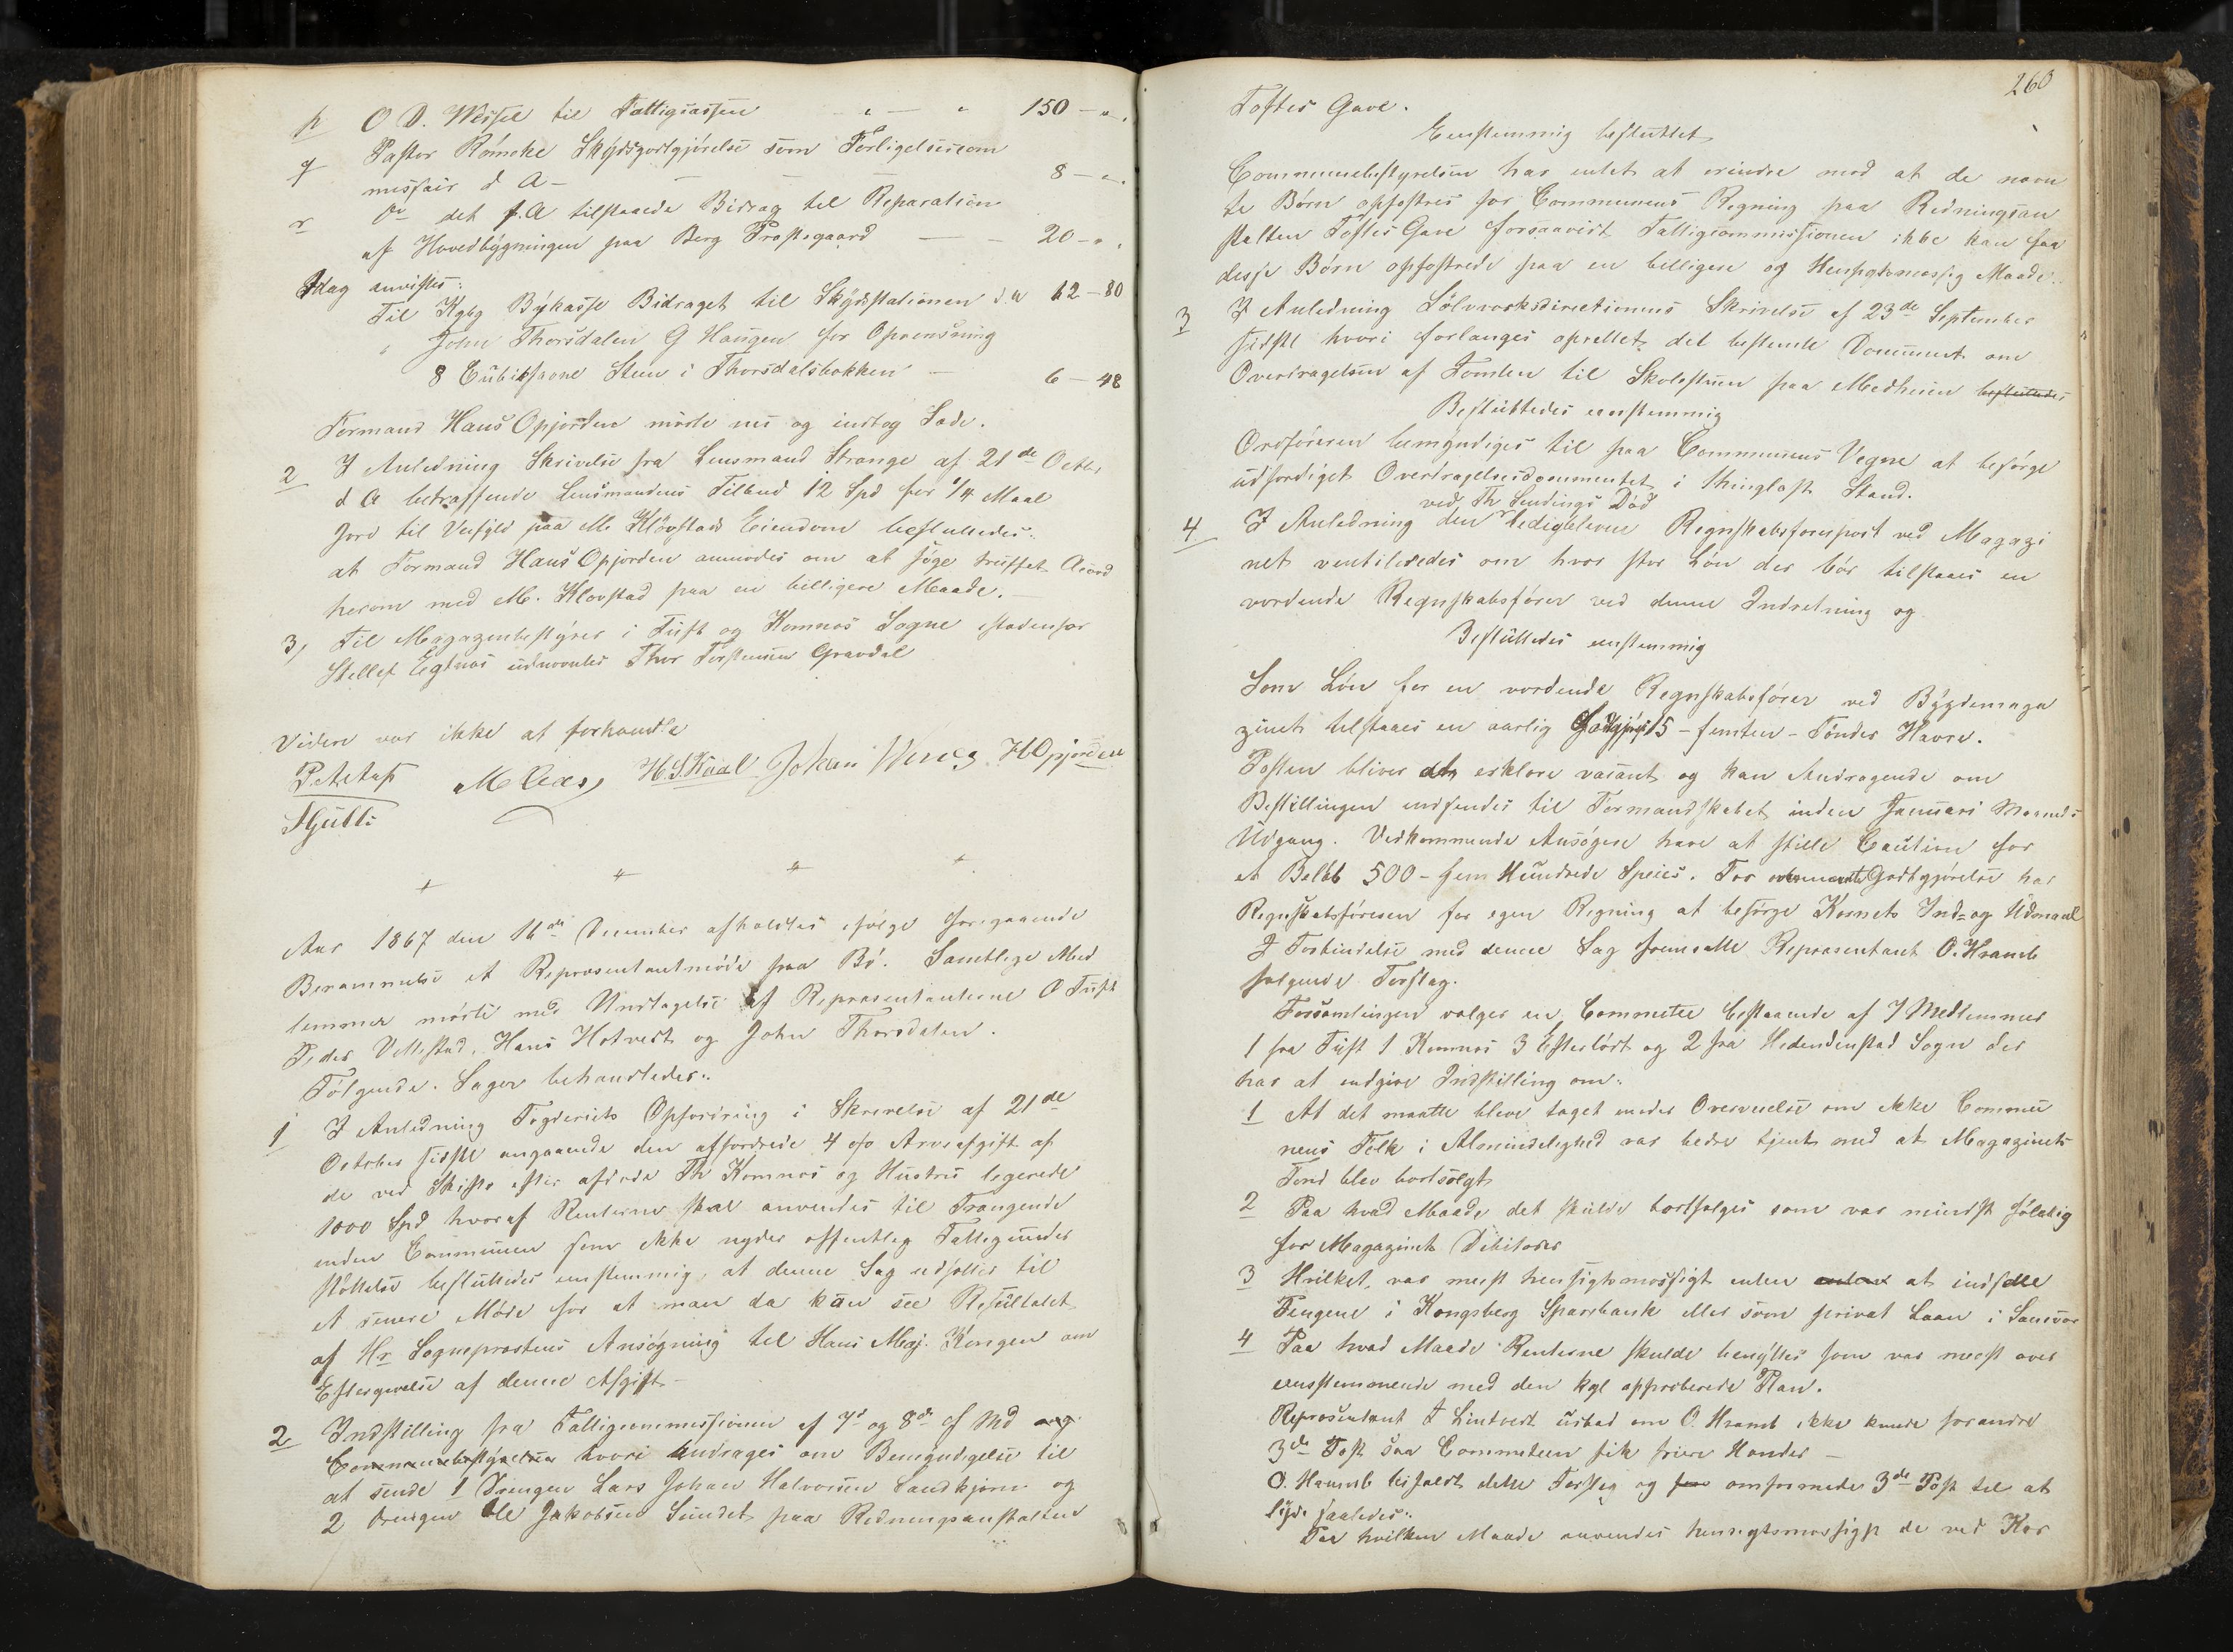 p O D. Wessel til Fattigcassen " — " 150 - "
q Pastor Römcke Skydsgodtgjörelse som Forligelsescom
missair d A — — — — 8 - "
r Do det f. A tilstaaede Bidrag til Reparation
af Hovedbygningen paa Berg Præstegaard — — 20 - "
Idag anvistes:
Til Kgbg Bykasse Bidraget til Skydsstationen d. A 62 - 80
" John Thorsdalen G Haugen for Oprensning
8 Cubikfavne Steen i Thorsdalsbækken — 6 - 48
Formand Hans Opjorden mödte nu og indtog Sæde.
2 I Anledning Skrivelse fra Lensmand Strange af 21de Octbr
d A betræffende Lensmandens Tilbud 12 Spd for 1/4 Maal
Jord til Veifyld paa M. Klövstads Eiendom besluttedes:
at Formand Hans Opjorden anmodes om at söge truffet Acord
herom med M. Klovstad paa en billigere Maade. —
3, Til Magazinbestyrer i Tuft og Komnæs Sogne istedenfor
Stellef Egtnæs udnævntes Thor Torstensen Gravdal
Videre var ikke at forhandle
P. A. Hass M Clees H. S. Kaal Johan Weres H Opjorden
+ + + +
Aar 1867 den 16de December afholdtes ifölge foregaaende
Berammelse et Repræsentantmöde paa Bö. Samtlige Med
lemmer mödte med Undtagelse af Repræsentanterne O Tuft
Peder Villestad, Hans Hotvedt og John Thorsdalen.
Fölgende Sager behandledes:
1 I Anledning Fogderiets Opfordring i Skrivelse af 21de
October sidstl angaaende den affordrede 4 o/o Arveafgift af
de ved Skifte efter afdöde Th Komnæs og Hustru legerede
1000 Spd hvoraf Renterne skal anvendes til Trængende
inden Communen som ikke nyder offentlig Fattigunder
stöttelse besluttedes enstemmig, at denne Sag udsættes til
et senere Möde for at man da kan see Resultatet
af Hr Sognepræstens Ansögning til Hans Maj. Kongen om
Eftergivelse af denne Afgift —
2 Indstilling fra Fattigcommissionen af 7d og 8de d Md og
Communebestyrelsen hvori andrages om Bemyndigelse til
at sende 1 Drengen Lars Johan Halvorsen Sandkjern og
2 Drengen Ole Jakobsen Sundet paa Redningsanstalten
263
Toftes Gave.
Eenstemmig besluttet
Communebestyrelsen har intet at erindre mod at de nævn
te Börn opfostres for Communens Regning paa Redningsan
stalten Toftes Gave forsaavidt Fattigcommissionen ikke kan faa
disse Börn opfostrede paa en billigere og Hensigtsmæssig Maade.
3 I Anledning Sölvværksdirectionens Skrivelse af 23de September
sidstl hvori forlanges oprettet det bestemte Document om
Overdragelsen af Tomten til Skolestuen paa Medheien besluttedes
Besluttedes eenstemmig
Ordföreren bemyndiges til paa Communens Vegne at besörge
udfærdiget Overdragelsesdocumentet i thinglæst Stand.
ved Th Sendings Död
4 I Anledning den ledigblevne Regnskabsförerpost ved Magazi
net ventileredes om hvor stor Lön der bör tilstaaes en
vordende Regnskabsförer ved denne Indretning og
Besluttedes enstemmig
Som Lön for en vordende Regnskabsförer ved Bygdemaga
zinet tilstaaes en aarlig Godtgjör. 15 - femten - Tönder Havre.
Posten bliver at erklære vacant og kan Andragende om
Bestillingen indsendes til Formandskabet inden Januari Maaneds
Udgang. Vedkommende Ansögere have at stille Caution for
et Belöb 500 - fem Hundrede Species. For ovennævnte Godtgjörelse har
Regnskabsföreren for egen Regning at besörge Kornets Ind- og Udmaal
I Forbindelse med denne Sag fremsatte Repræsentant O. Hramb
fölgende Forslag.
Forsamlingen vælger en Committee bestaaende af 7 Medlemmer
1 fra Tuft 1 Komnæs 3 Efterlödt og 2 fra Hedenstad Sogn der
har at indgive Indstilling om:
1 At det maatte blive taget under Overveielse om ikke Commu
nens Folk i Almindelighed var bedre tjent med at Magazinets
Fond blev bortsolgt
2 Paa hvad Maade det skulde bortsælges som var mindst fölelig
for Magazinets Debitorer
3 Hvilket var meest hensigtsmæssigt enten enten at indsætte
Pengene i Kongsberg Sparebank eller som privat Laan i Sandsvær
4 Paa hvad Maade Renterne skulde benyttes som var meest over
eensstemmende med den kgl approberede Plan.
Repræsentant T Lindvedt udbad om O. Hramb ikke kunde forandre
3de Post saa Committeen fik friere Hænder —
O. Hramb bifaldt dette Forslag og for omformede 3de Post til at
lyde saaledes:
Paa hvilken Maade anvendes hensigtsmæssigst de ved Kor